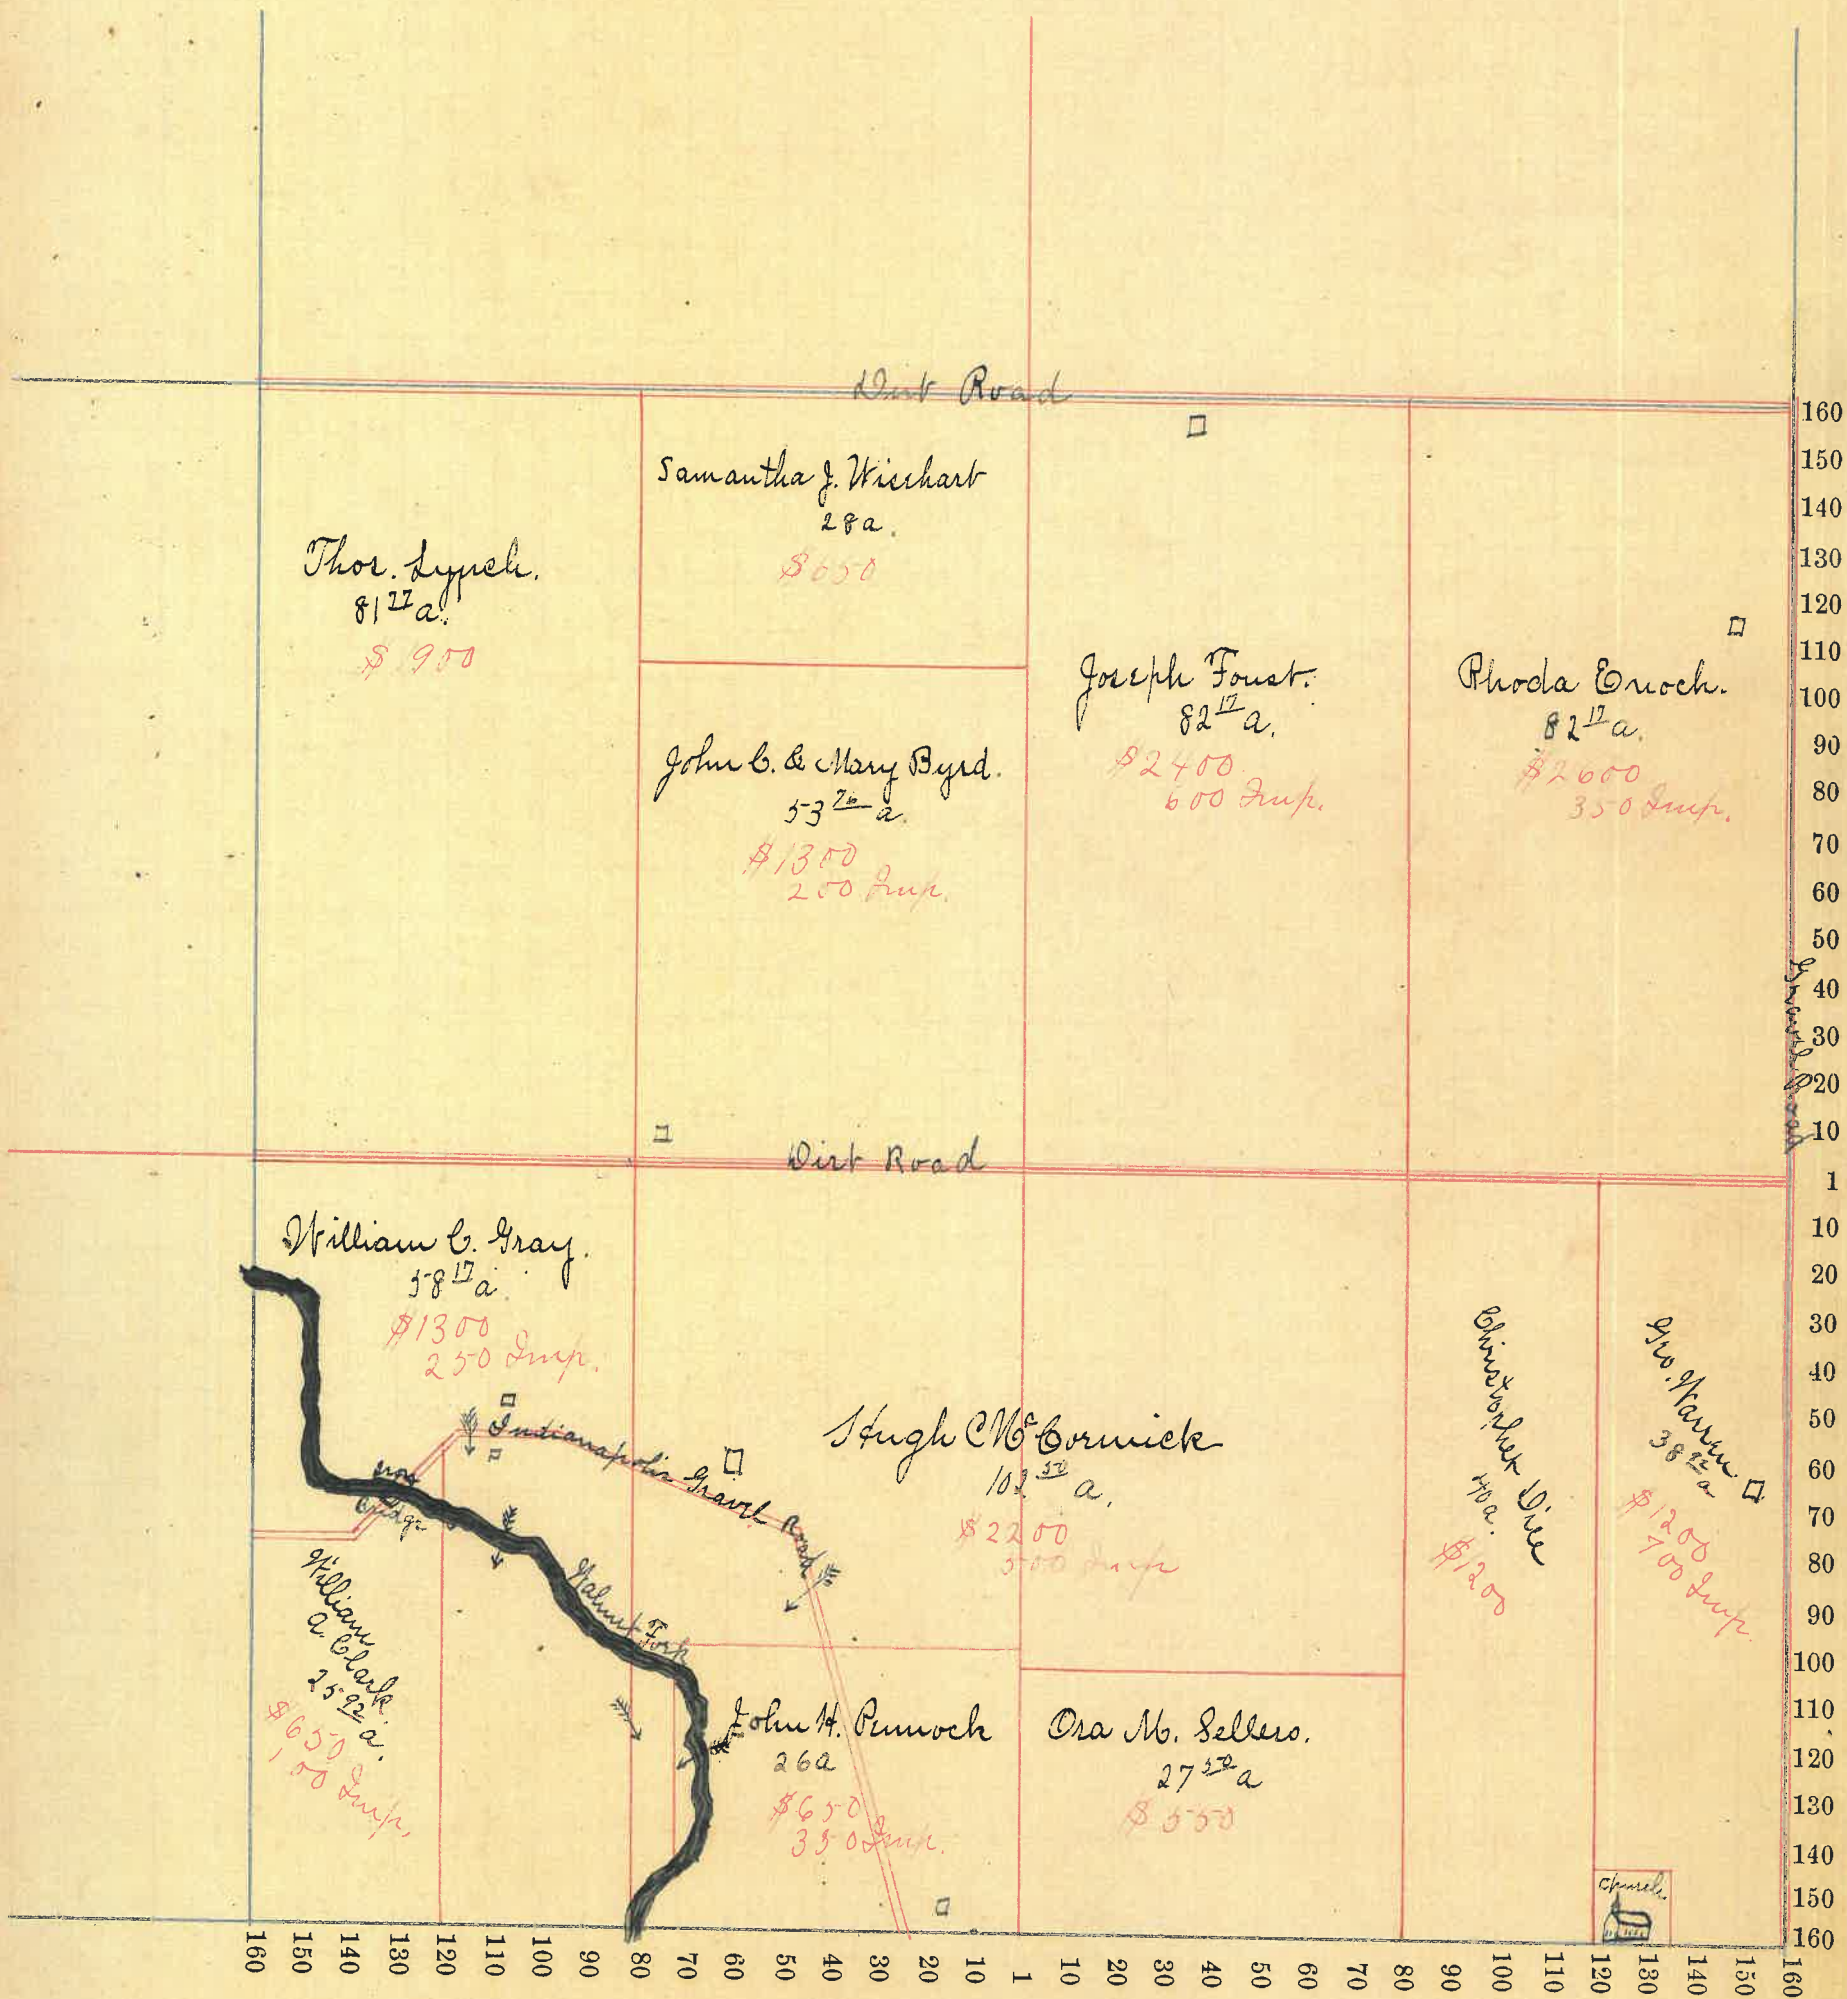 Dirt Road
Samantha J. Wisehart
28 a.
$650
Thos. Lynch.
81 77 a.
$900
Joseph Foust.
82 17 a.
$2400
600 Imp.
Rhoda Enoch.
82 17 a.
$2600
350 Imp.
John C. & Mary Byrd.
53 76 a.
$1300
200 Imp.
Gravel Road
Dirt Road
William C. Gray.
58 17 a.
$1300
250 Imp.
Indianapolis Gravel Road
Iron
Bridge
Walnut Fork
Hugh McCormick
102 50 a.
$2200
500 Imp
Christopher Dice
40 a.
$1200
Geo. Warren.
38 92 a
$1200
700 Imp
William
A. Clark
25 92 a.
$650
100 Imp.
John H. Pennock
26 a
$650
350 Imp.
Ora M. Sellers.
27 50 a
$550
Church.
160
150
140
130
120
110
100
90
80
70
60
50
40
30
20
10
1
10
20
30
40
50
60
70
80
90
100
110
120
130
140
150
160
160 150 140 130 120 110 100 90 80 70 60 50 40 30 20 10 1 10 20 30 40 50 60 70 80 90 100 110 120 130 140 150 160